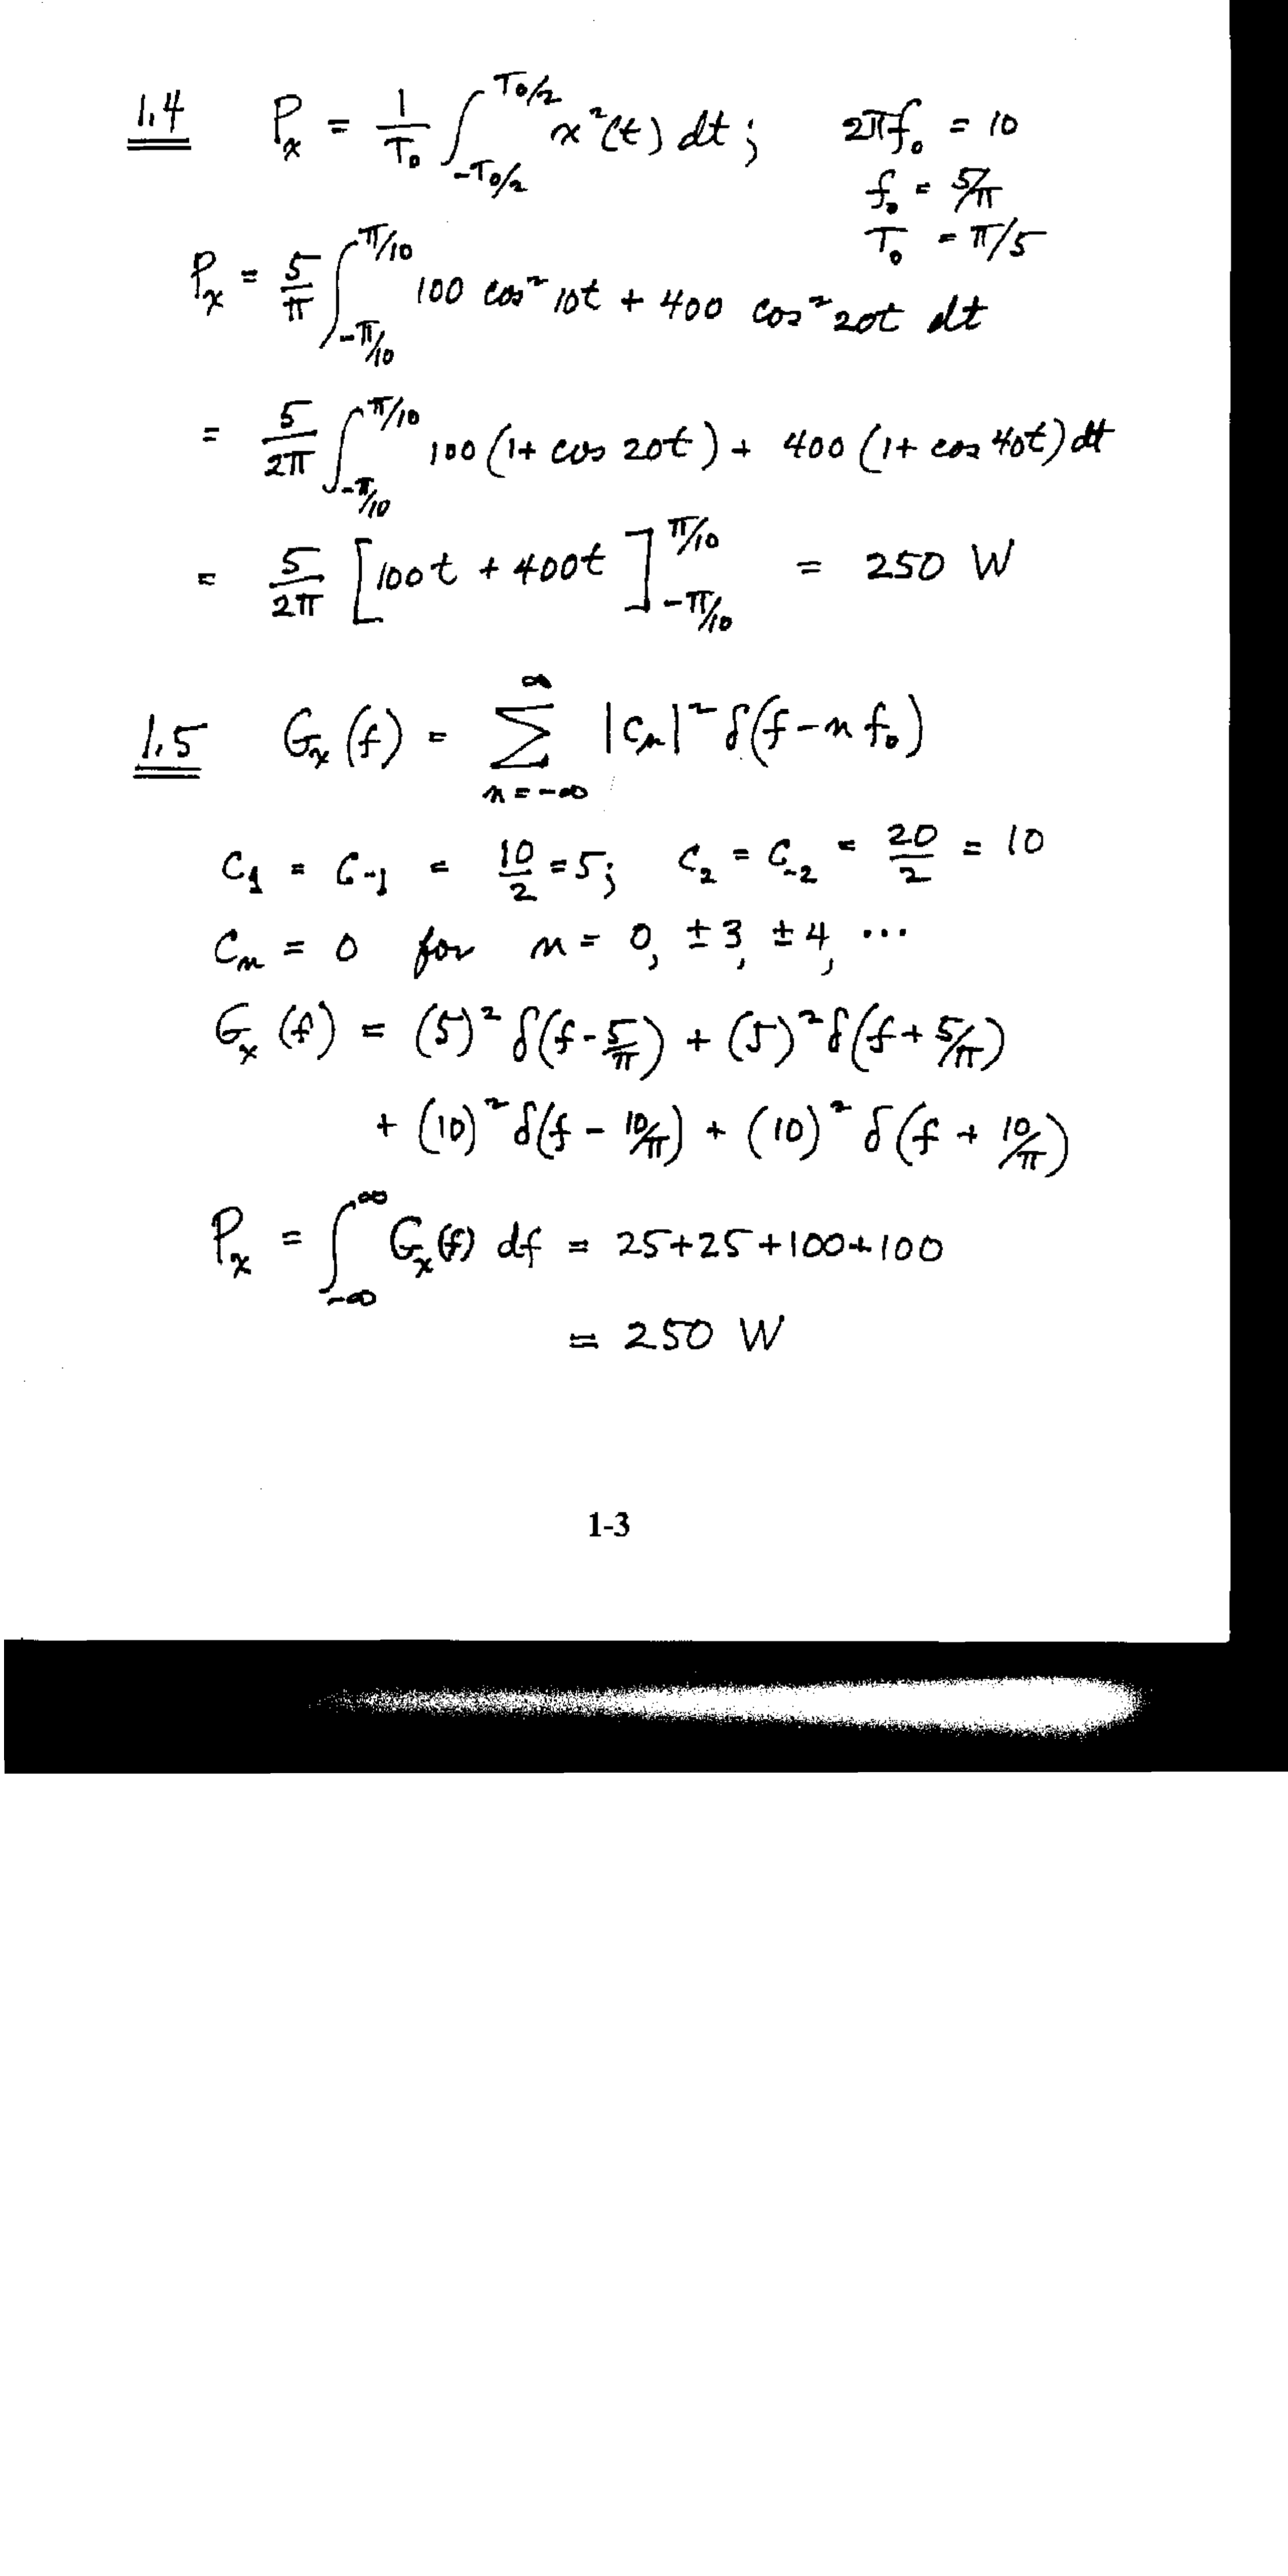 1.4 P_x = 1/T_0 ∫_{-T_0/2}^{T_0/2} x²(t) dt; 2πf_0 = 10
f_0 = 5/π
T_0 = π/5
P_x = 5/π ∫_{-π/10}^{π/10} 100 cos² 10t + 400 cos² 20t dt
= 5/2π ∫_{-π/10}^{π/10} 100 (1 + cos 20t) + 400 (1 + cos 40t) dt
= 5/2π [100t + 400t]_{-π/10}^{π/10} = 250 W
1.5 G_x (f) = ∑_{n=-∞}^{∞} |c_n|² δ(f - n f_0)
C_1 = C_{-1} = 10/2 = 5; C_2 = C_{-2} = 20/2 = 10
C_n = 0 for n = 0, ±3, ±4, ...
G_x (f) = (5)² δ(f - 5/π) + (5)² δ(f + 5/π)
+ (10)² δ(f - 10/π) + (10)² δ(f + 10/π)
P_x = ∫_{-∞}^{∞} G_x(f) df = 25+25+100+100
= 250 W
1-3